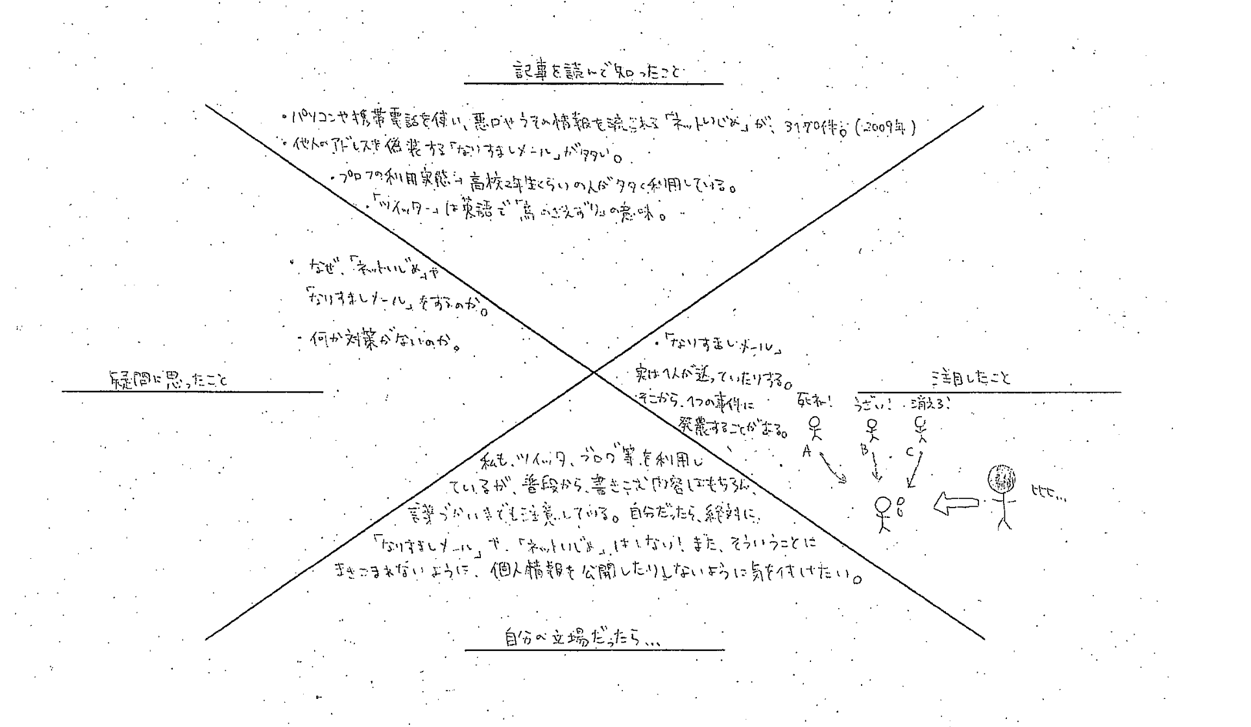 記事を読んで知ったこと
・パソコンや携帯電話を使い、悪口やうその情報を流される「ネットいじめ」が、3170件。(2009年)
・他人のアドレスを偽装する「なりすましメール」が多い。
・プロフの利用実態→高校2年生くらいの人が多く利用している。
・「ツイッター」は英語で「鳥のさえずり」の意味。
・なぜ、「ネットいじめ」や
「なりすましメール」をするのか。
・何か対策がないのか。
疑問に思ったこと
・「なりすましメール」
実は1人が送っていたりする。
そこから、1つの事件に
発展することがある。
注目したこと
死ね!
うざい!
消えろ!
A
B
C
ヒヒヒ...
私も、ツイッタ、ブログ等を利用し
ているが、普段から、書きこむ内容はもちろん、
言葉づかいまでも注意している。自分だったら、絶対に、
「なりすましメール」や、「ネットいじめ」はしない!また、そういうことに
まきこまれないように、個人情報を公開したりしないように気を付けたい。
自分の立場だったら...